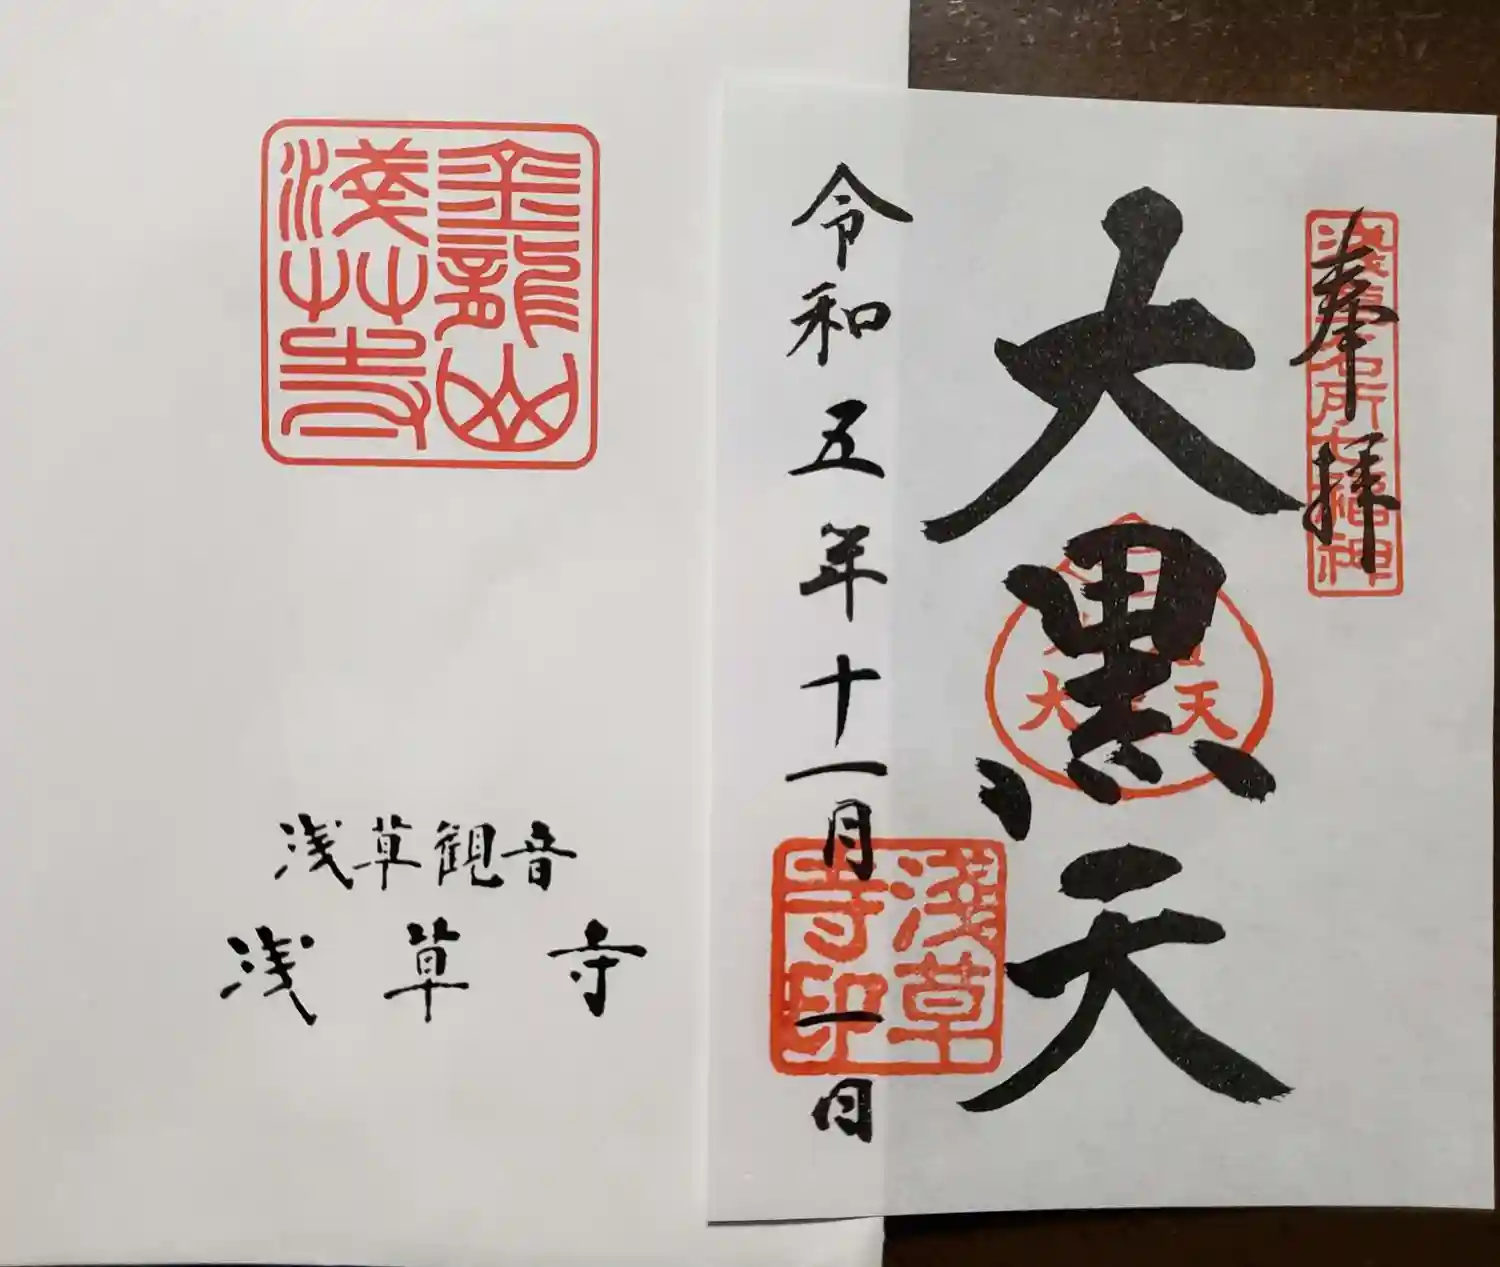 奉拝
淺草名所七福神
大黒天
大 天
令和五年十一月一日
淺草
寺印
金龍山
淺草寺
浅草観音
浅草寺